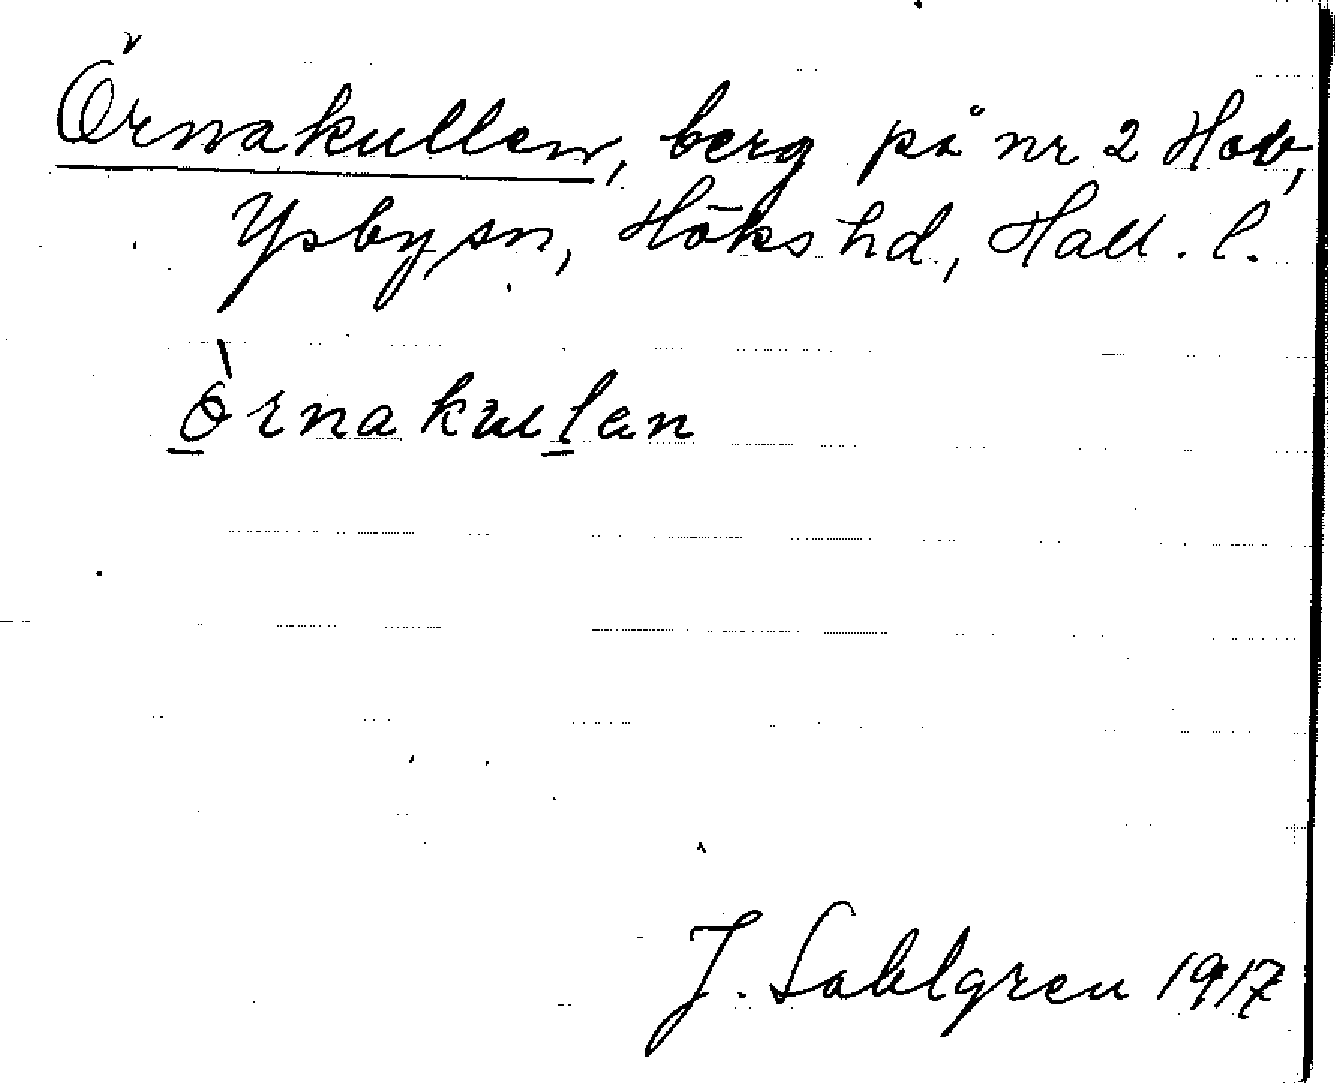 Örnakullen, berg på nr 2 Hov,
Ysby sn, Höks hd, Hall. l.
Örnakulen
J. Sahlgren 1917